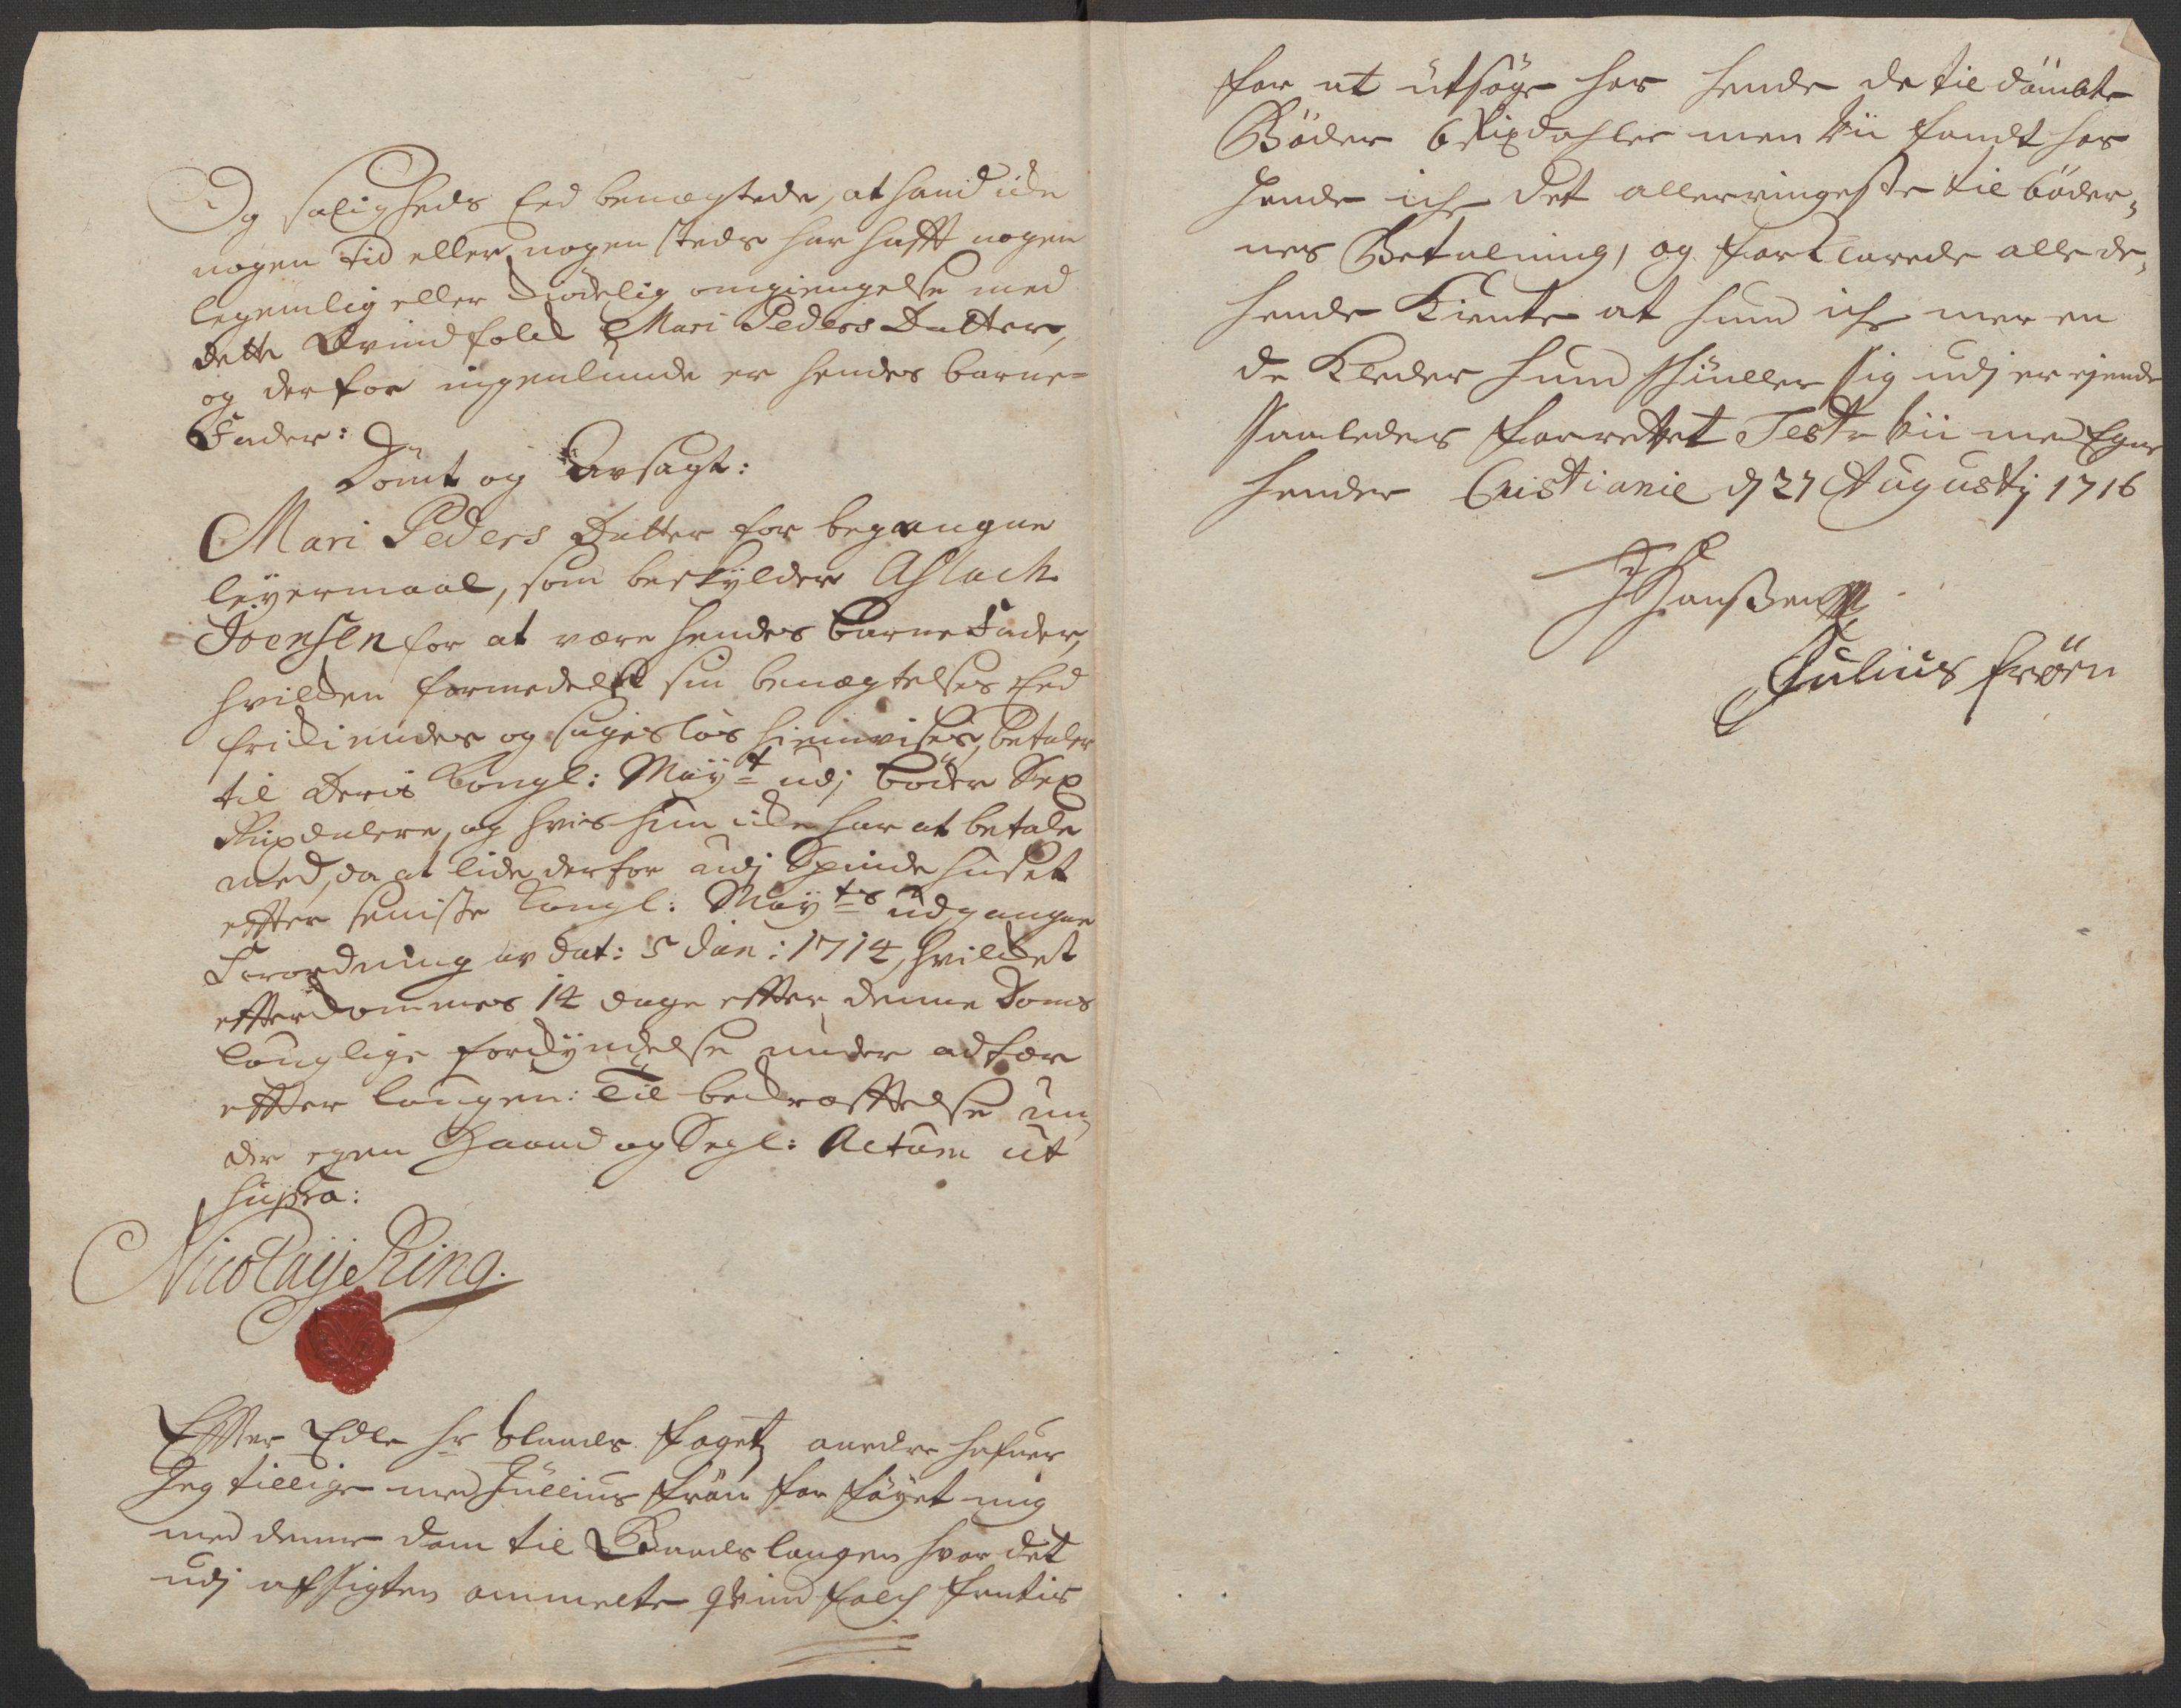 Og saligheds Eed benægtede, at hand icke
nogen tid eller nogen steds har hafft nogen
legemlig eller kiødelig omgiengelse med
dette Qvindfolck Mari Peders Datter,
og derfor ingenlunde er hendes barne=
Fader:
Dömt og Avsagt:
Mari Peders Datter for begangne
leyermaal, som beskylder Aslach
Joensen for at være hendes barne Fader,
hvilcken formedelst sin benægtelses Eed
frikiendes og sagesløs hiemvises, betaler
til Deris Kongl: Mayt udj bøder Sex
Rixdalere, og hvis hun icke har at betale
med, da at lide derfor udj Spindehuset
effter seniste Kongl: Mayts udgangne
Forordning av dat: 5 Jan: 1714, hvilcket
effterkommes 14 dage effter denne Doms
louglige forkyndelse under adfær
effter lougen: Til bekræfftelse un,
der egen Haand og Segl: Actum ut
supra:
Nicolaij Ring.
Effter Edle hr Slauds fogetz ordre hafuer
Jeg tillige med Jullius frön for föyet mig
med denne dom til Baads laugen hvor det
udj afsigten ommelte qvindfolch fantis
for at utsöge hos hende de tildömbte
Böder 6 Rixdahler men vii fandt hos
hende iche det allerringeste til böder,
nes Betalning, og forklarede alle de,
hende Kiente at hun iche mer en
de Kleder hun skiuller sig udj er ejende
saaledes forrettet Test vii med Egne
hender Cristianie d 27 Augustj 1716
J Hanßen
Julius frörn